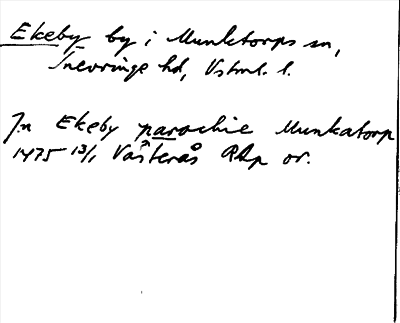 Ekeby by i Munktorps sn,
Snevringe hd, Vstml. l.
In Ekeby parochie Munkatorp
1475 13/1 Västerås RAp or.